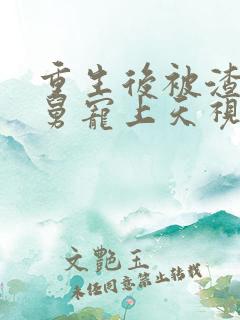 重生後被渣
舅寵上天視
文艷玉
未经同意禁止转载